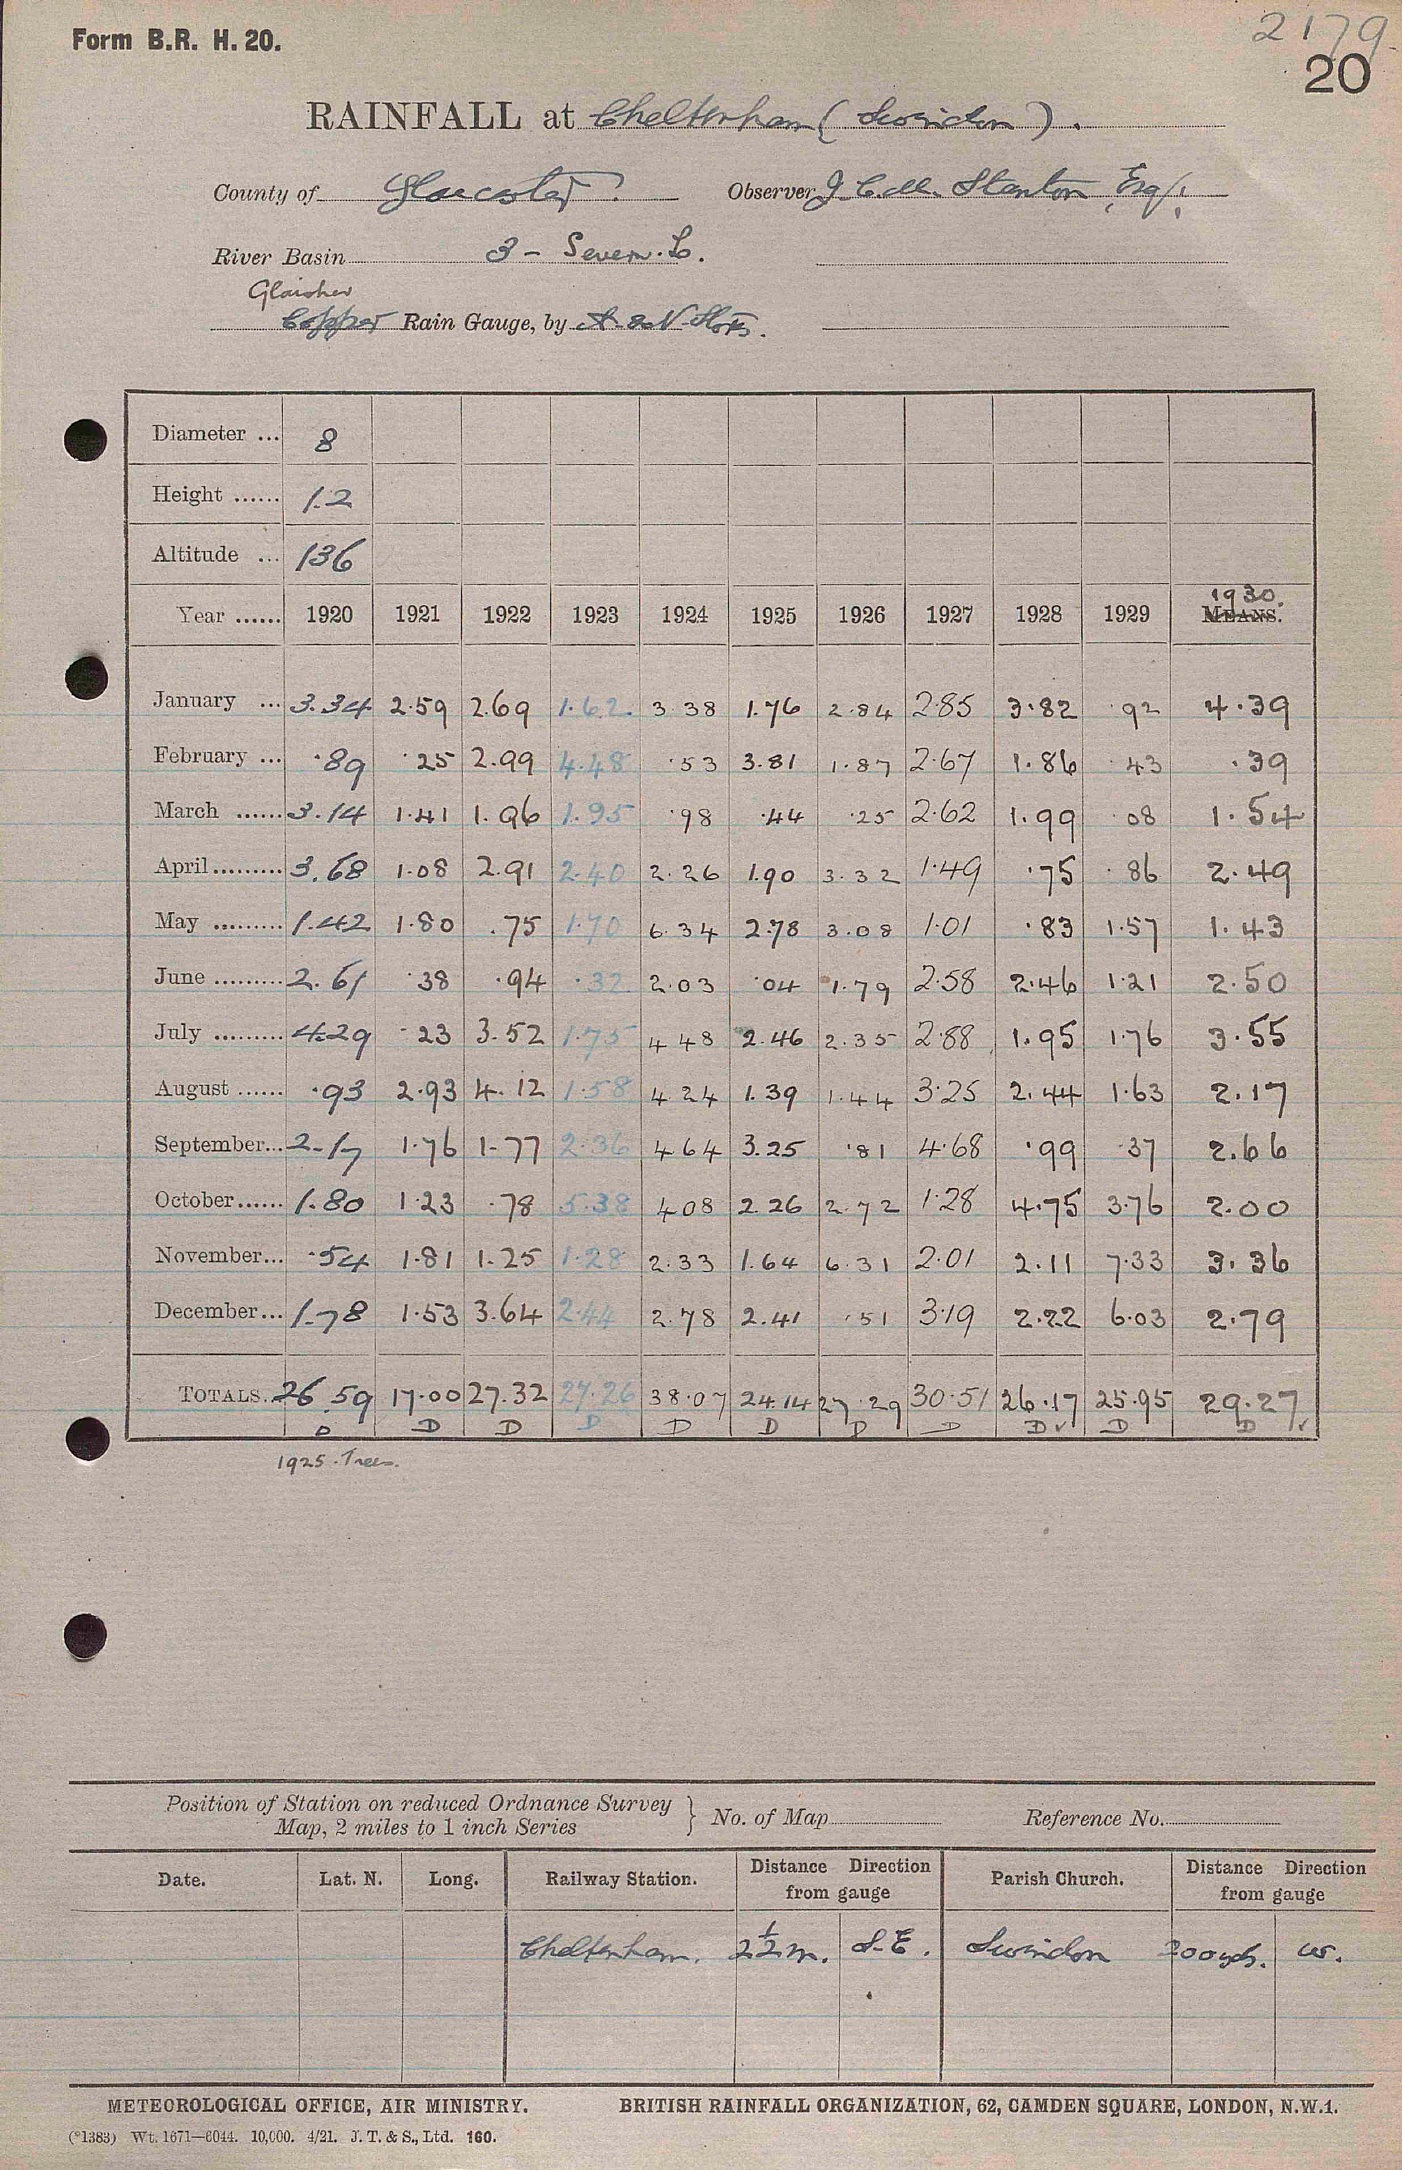 Form B.R. H. 20.
2179
20
RAINFALL at Cheltenham (Swindon).
County of Gloucester. Observer J. C. M. Stanton Esq.
River Basin 3 - Severn. Lo.
Glaisher
Copper Rain Gauge, by A & N Stores.
Diameter ... 8
Height ...... 1.2
Altitude ... 136
1930.
Year ...... 1920 1921 1922 1923 1924 1925 1926 1927 1928 1929 MEANS.
January ... 3.34 2.59 2.69 1.62 3.38 1.76 2.84 2.85 3.82 .92 4.39
February ... .89 .25 2.99 4.48 .53 3.81 1.87 2.67 1.86 .43 .39
March ...... 3.14 1.41 1.96 1.95 .98 .44 .25 2.62 1.99 .08 1.54
April......... 3.68 1.08 2.91 2.40 2.26 1.90 3.32 1.49 .75 .86 2.49
May ......... 1.42 1.80 .75 1.70 6.34 2.78 3.08 1.01 .83 1.57 1.43
June ......... 2.61 .38 .94 .32 2.03 .04 1.79 2.58 2.46 1.21 2.50
July ......... 4.29 .23 3.52 1.75 4.48 2.46 2.35 2.88 1.95 1.76 3.55
August ...... .93 2.93 4.12 1.58 4.24 1.39 1.44 3.25 2.44 1.63 2.17
September... 2.17 1.76 1.77 2.36 4.64 3.25 .81 4.68 .99 .37 2.66
October...... 1.80 1.23 .78 5.38 4.08 2.26 2.72 1.28 4.75 3.76 2.00
November... .54 1.81 1.25 1.28 2.33 1.64 6.31 2.01 2.11 7.33 3.36
December... 1.78 1.53 3.64 2.44 2.78 2.41 .51 3.19 2.22 6.03 2.79
TOTALS.. 26.59 17.00 27.32 27.26 38.07 24.14 27.29 30.51 26.17 25.95 29.27
D D D D D D D D D✓ D D ✓
1925. Trees.
Position of Station on reduced Ordnance Survey
Map, 2 miles to 1 inch Series } No. of Map Reference No.
Date. Lat. N. Long. Railway Station. Distance Direction from gauge Parish Church. Distance Direction from gauge
Cheltenham. 2½ m. S.E. Swindon 200 yds. W.
METEOROLOGICAL OFFICE, AIR MINISTRY. BRITISH RAINFALL ORGANIZATION, 62, CAMDEN SQUARE, LONDON, N.W.1.
(*1383) Wt. 1671—6044. 10,000. 4/21. J. T. & S., Ltd. 160.